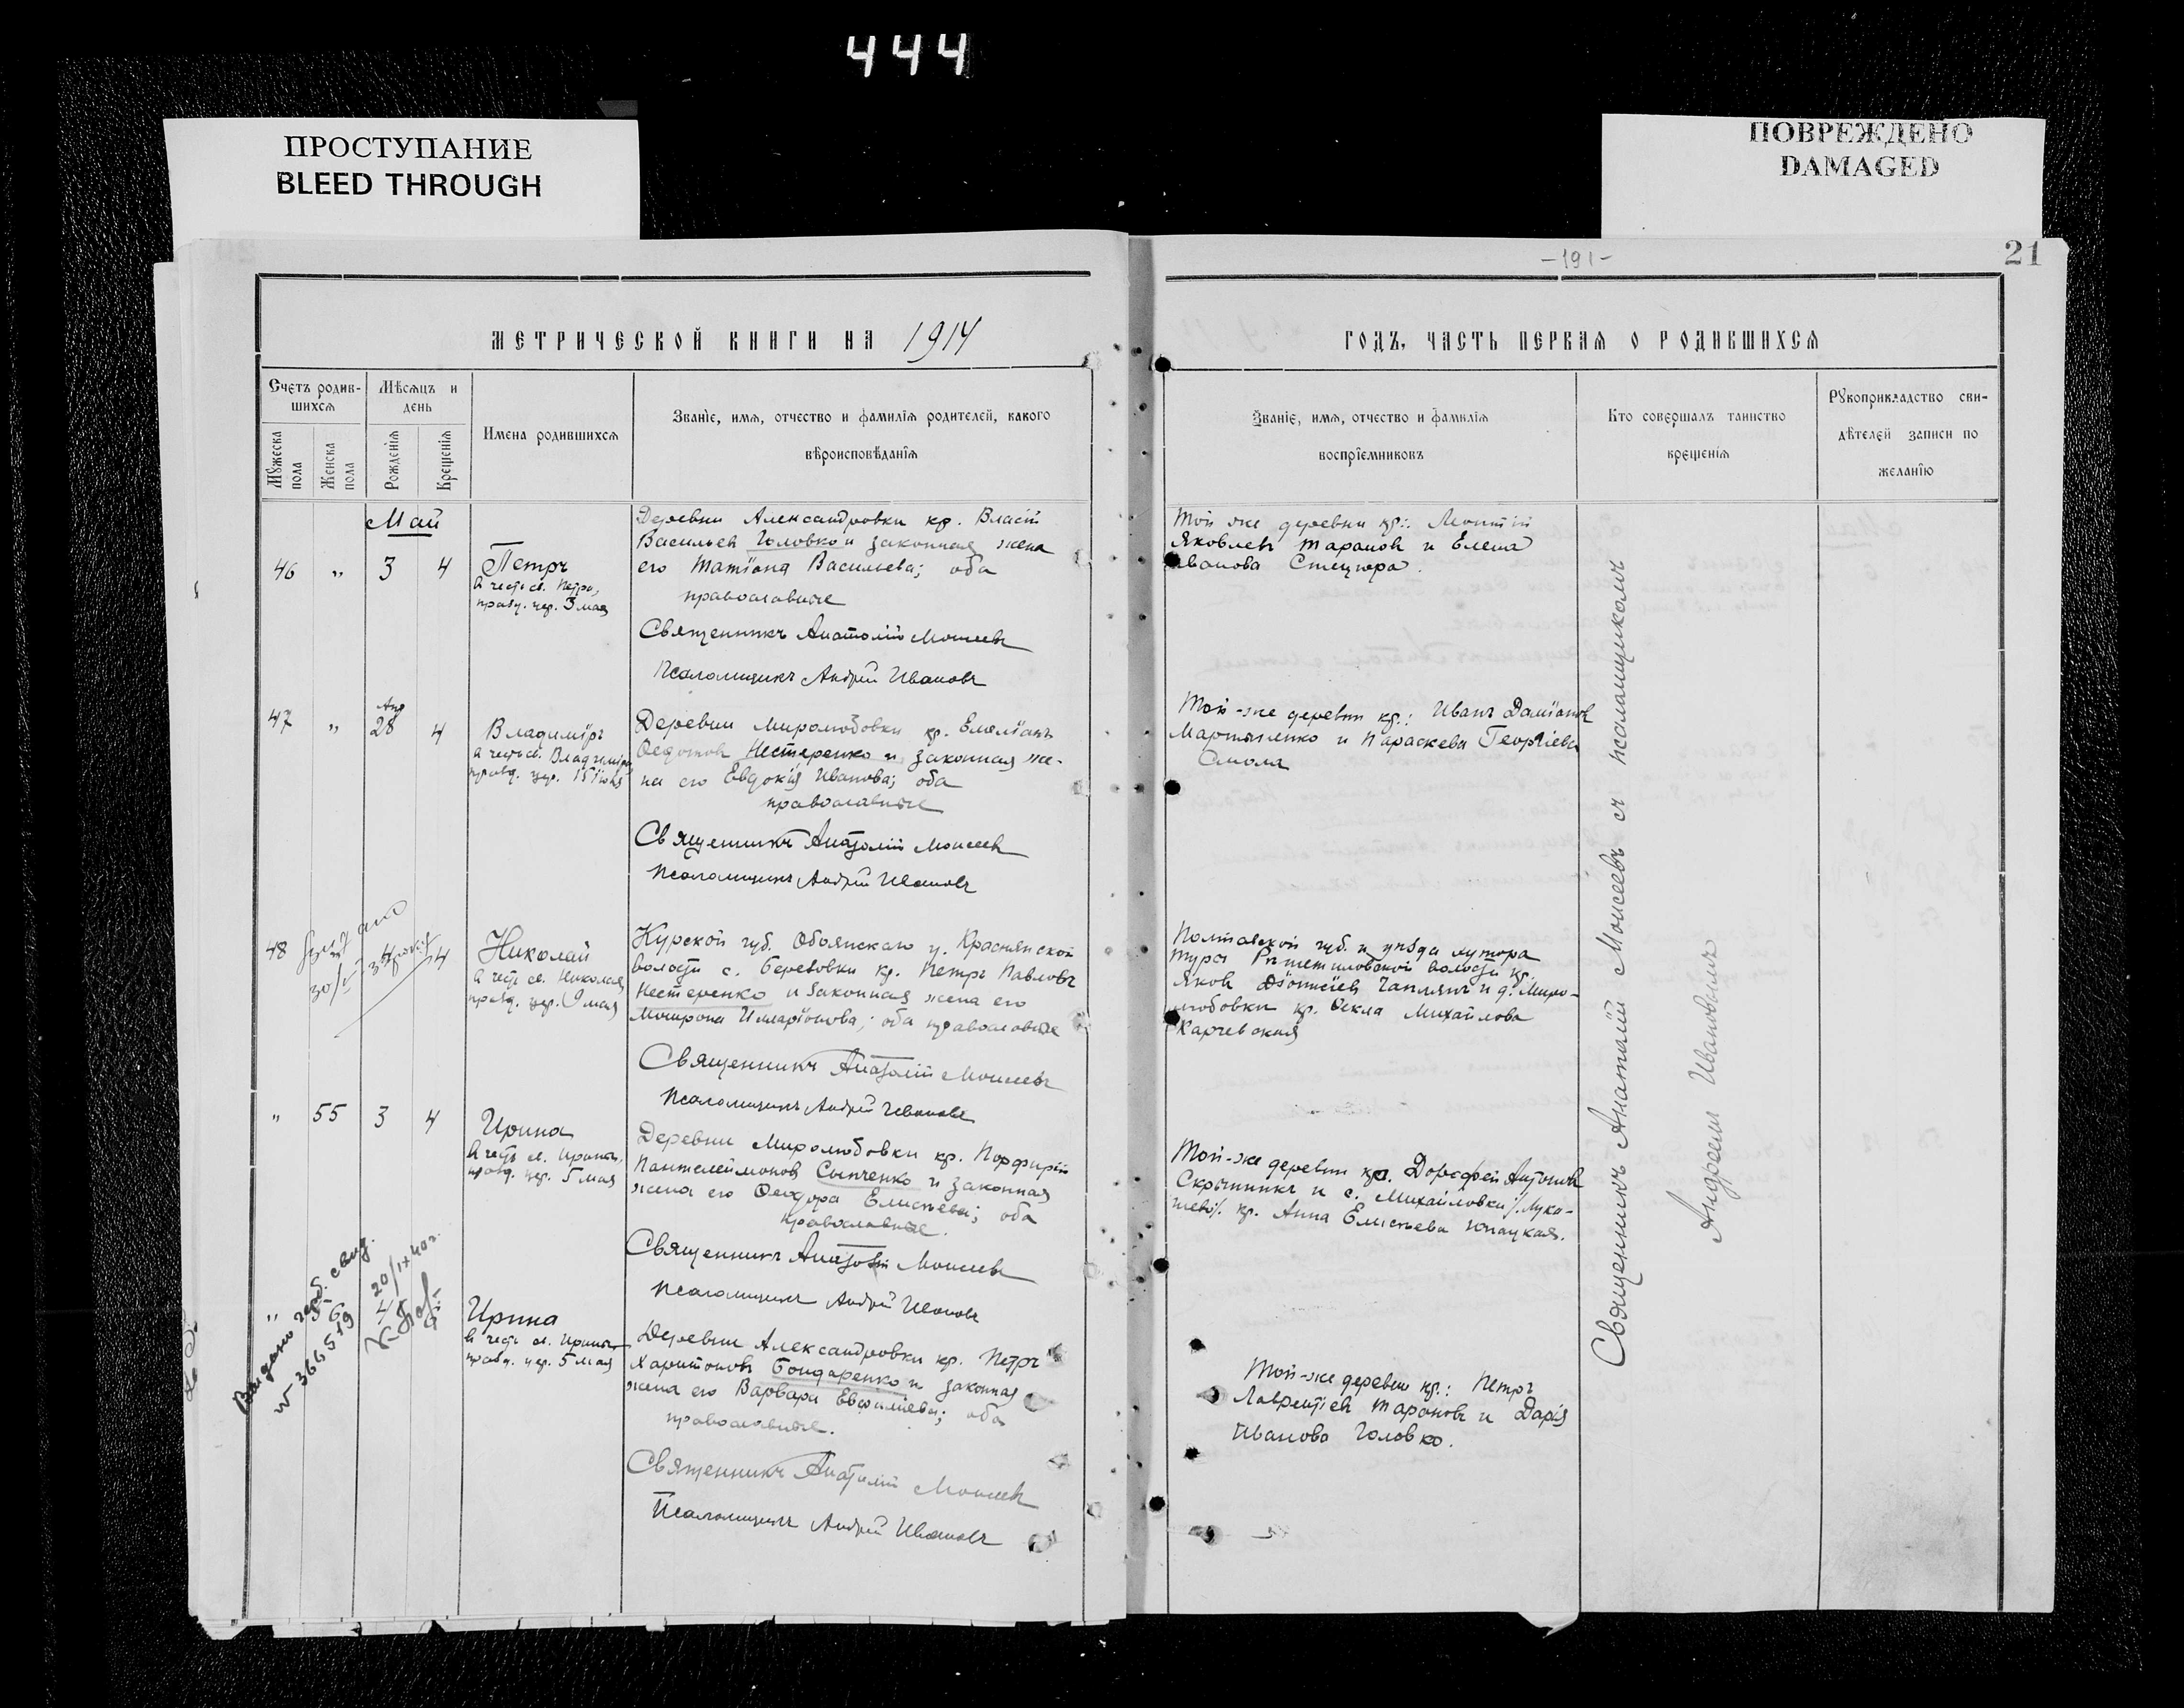 444
ПРОСТУПАНИЕ
BLEED THROUGH
ПОВРЕЖДЕНО
DAMAGED
-191-
21
МЕТРИЧЕСКОЙ КНИГИ НА 1914
ГОДЪ, ЧАСТЬ ПЕРВАЯ О РОДИВШИХСЯ
Счетъ родив-
шихся
Мужеска пола
Женска пола
Мѣсяцъ и
день
Рожденія
Крещенія
Имена родившихся
Званіе, имя, отчество и фамилія родителей, какого
вѣроисповѣданія
Званіе, имя, отчество и фамилія
воспріемниковъ
Кто совершалъ таинство
крещенія
Рукоприкладство сви-
дѣтелей записи по
желанію
Май
46 " 3 4
Петръ
в честь св. Петра,
празд. цер. 3 мая
Деревни Александровки кр. Власій
Васильев Головко и законная жена
его Татіана Васильева; оба
православные
Священникъ Анатолій Моисеевъ
Псаломщикъ Андрей Ивановъ
Той же деревни кр.: Леонтій
Яковлевъ Тарановъ и Елена
Иванова Стецюра.
47 " Апр 28 4
Владиміръ
в честь св. Владиміра,
празд. цер. 15 іюля
Деревни Миролюбовки кр. Емеліанъ
Федотовъ Нестеренко и законная же-
на его Евдокія Иванова; оба
православные
Священникъ Анатолій Моисеевъ
Псаломщикъ Андрей Ивановъ
Той-же деревни кр.: Иванъ Даміановъ
Мартыненко и Параскева Георгіева
Смола
48 4
Николай
в честь св. Николая,
празд. цер. 9 мая
Курской губ. Обоянскаго у. Краснянской
волости с. Березовки кр. Петръ Павловъ
Нестеренко и законная жена его
Матрона Илларіонова; оба православные
Священникъ Анатолій Моисеевъ
Псаломщикъ Андрей Ивановъ
Полтавской губ. и уѣзда хутора
Рѣшетиловской волости кр.
Яковъ Діонисіевъ Чаплянъ и д. Миро-
любовки кр. Ѳекла Михайлова
Карчевская
" 55 3 4
Ирина
в честь св. Ирины,
празд. цер. 5 мая
Деревни Миролюбовки кр. Порфирій
Пантелеймоновъ Сыпченко и законная
жена его Ѳеодора Елисѣева; оба
православные.
Священникъ Анатолій Моисеевъ
Псаломщикъ Андрей Ивановъ
Той-же деревни кр. Доросфей Антоновъ
Скрыпникъ и с. Михайловки /Лука-
шево/. кр. Анна Елисѣева
Выдано герб. свид.
№ 366519
20/IX 40 г.
" 56 4
Ирина
в честь св. Ирины,
празд. цер. 5 мая
Деревни Александровки кр. Петръ
Харитоновъ Бондаренко и законная
жена его Варвара Евфиміева; оба
православные.
Священникъ Анатолій Моисеевъ
Псаломщикъ Андрей Ивановъ
Той-же деревни кр.: Петръ
Лаврентіевъ Тарановъ и Дарія
Иванова Головко.
Священникъ Анатолій Моисеевъ съ псаломщикомъ
Андреемъ Ивановымъ